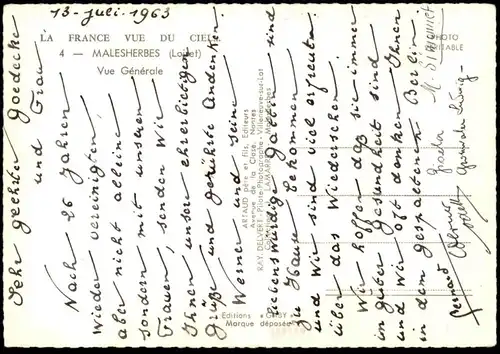 13-juli-1963
LA FRANCE VUE DU CIEL...
4 — MALESHERBES (Loiret)
Vue Générale
PHOTO
VÉRITABLE
Sehr geehrter Goedecke
und Frau.
Nach 26 Jahren
Wieder vereinigten,
aber nicht alleine
sondern mit unseren
Frauen, senden Wir
Ihnen unser ehrerbietigen
Grüße und gerührte Andenken.
Werner und seine
liebenswürdig Gattin sind
zu Hause bekommen
Wir sind viel erfreuten
über das Wiedersehen.
Wir hoffen daß sie immer
in guter Gesundheit sind
und Wir oft denken Ihnen
in dem gespaltenen Berlin.
Werner
Bernard
Gisela
ARTAUD père et fils, Éditeurs
Avenue de la Close, Nantes
RAY. DELVERT - Pilote-Photographe - Villeneuve-sur-Lot
Collection LAMAND - Malesherbes
Editions « GABY »
Marque déposée